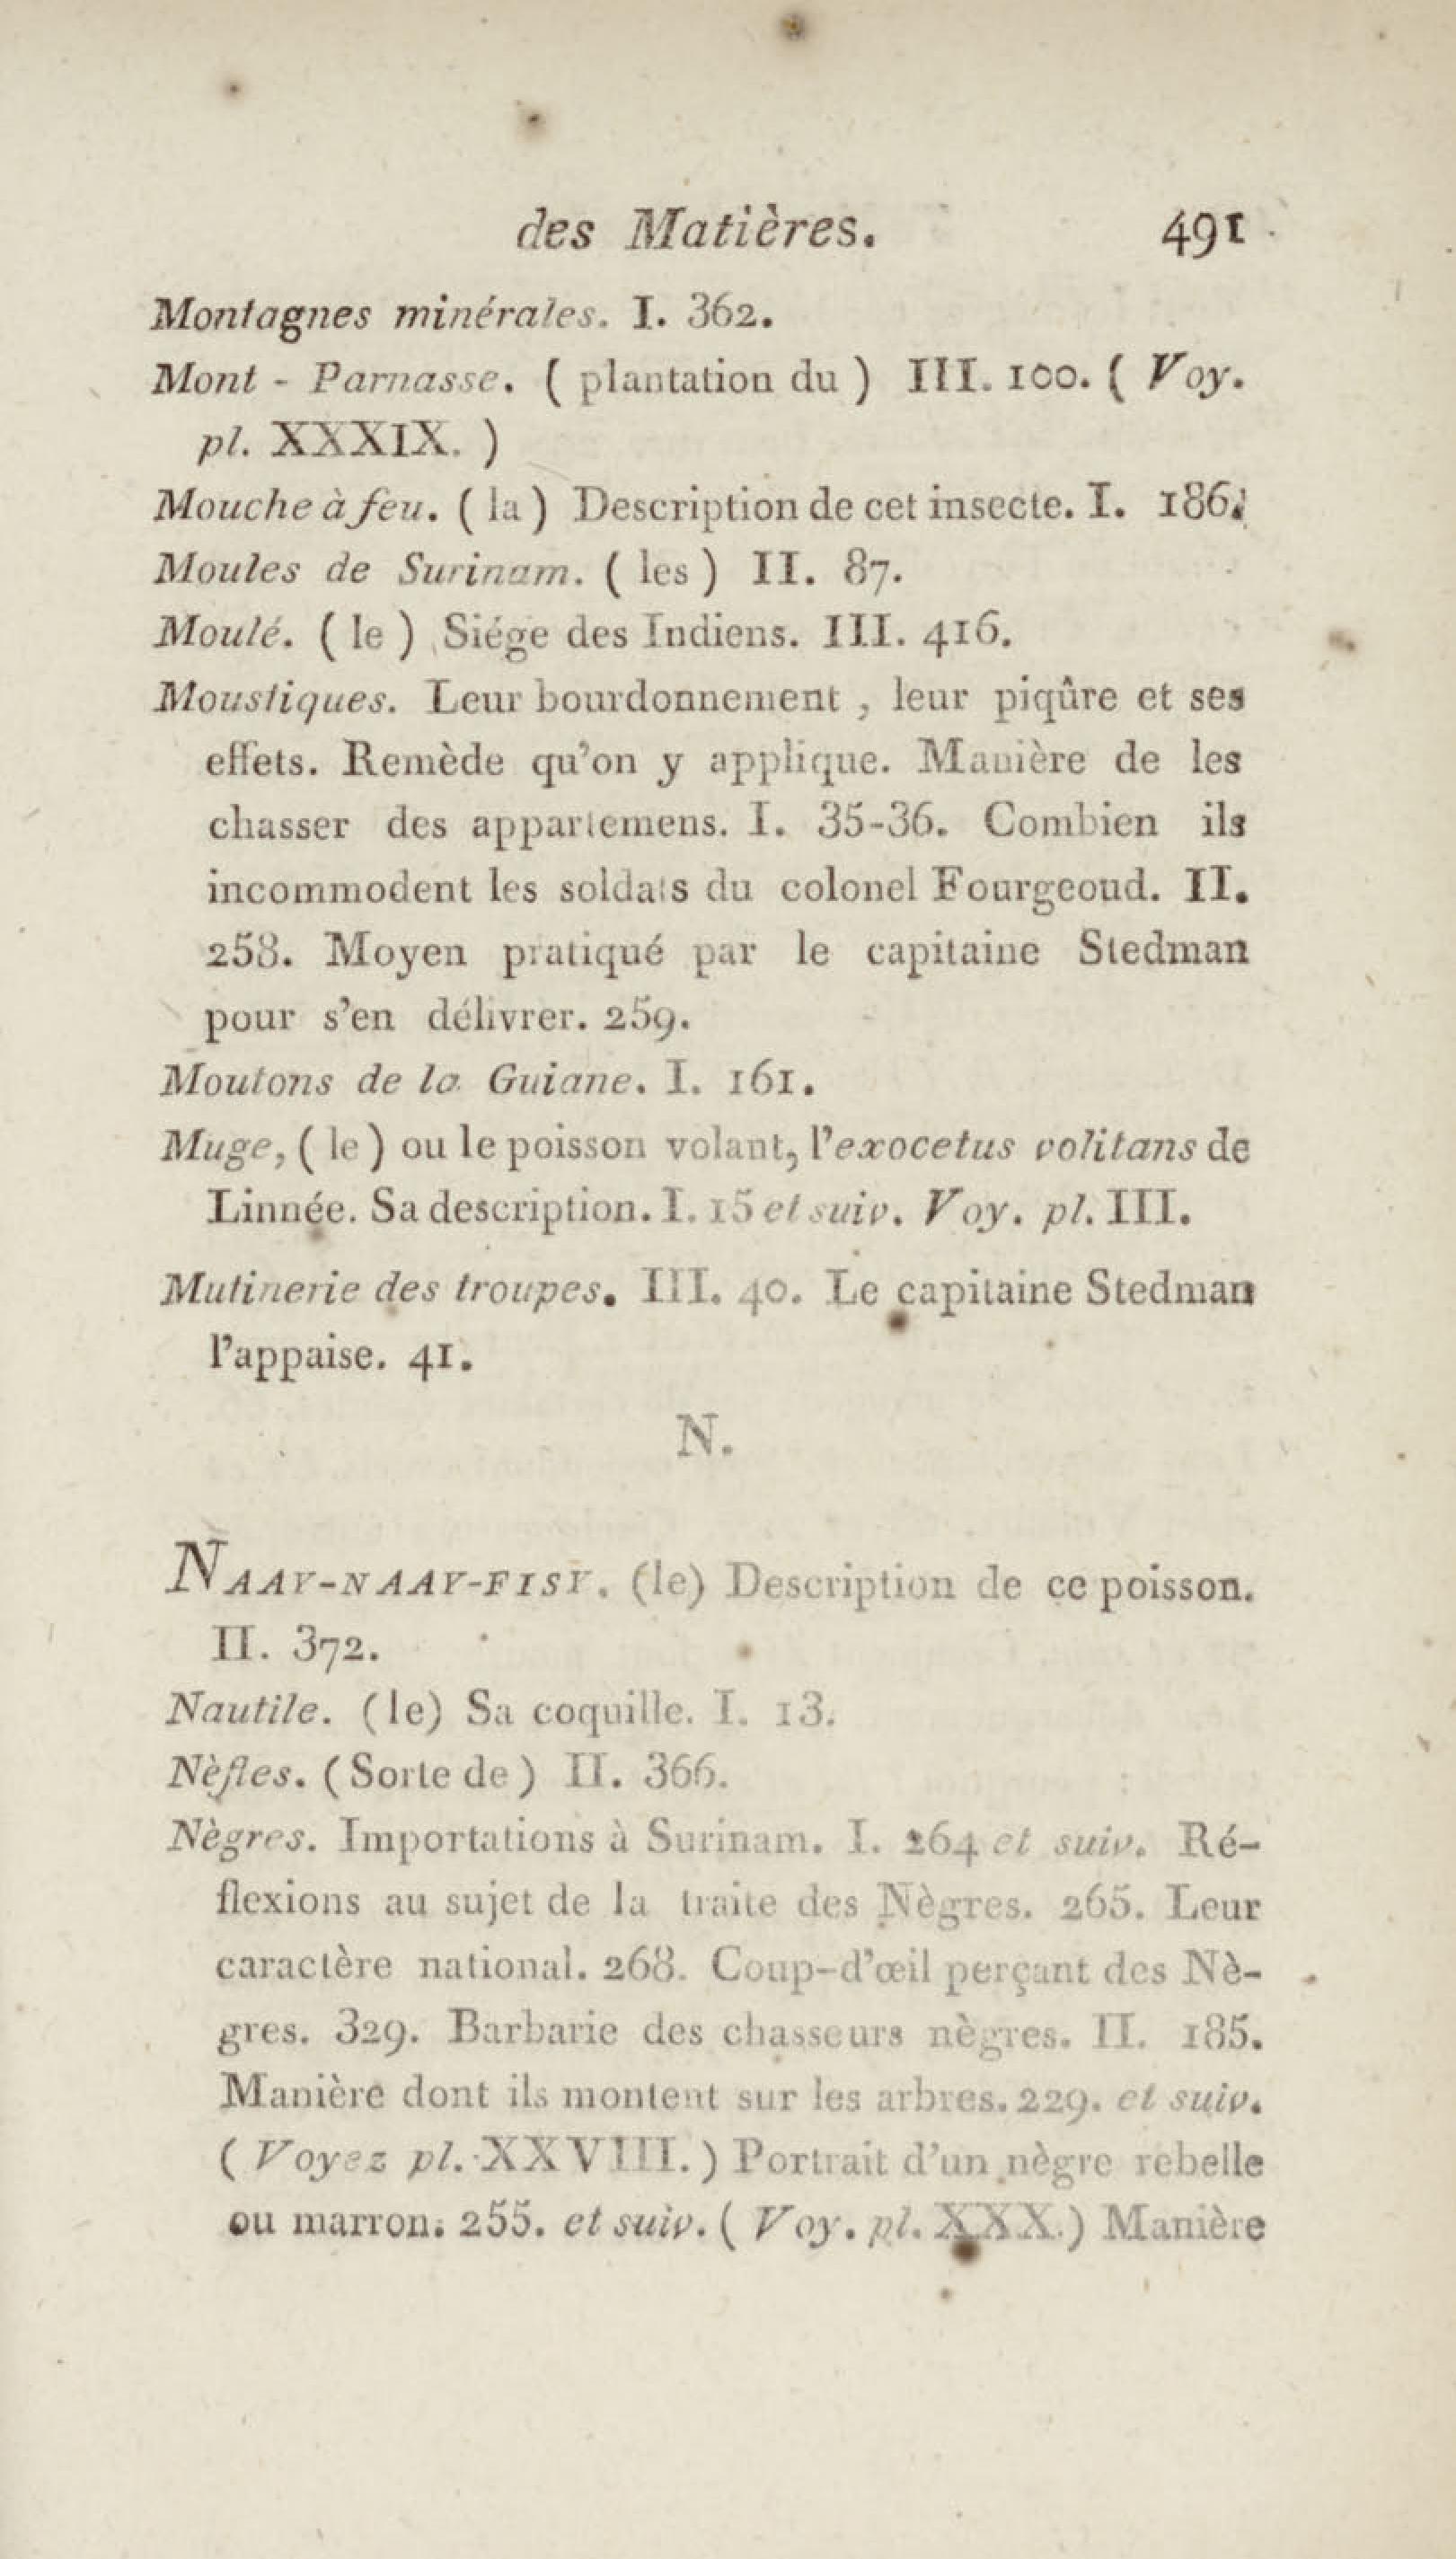 des Matières. 491
Montagnes minérales. I. 362.
Mont - Parnasse. ( plantation du ) III. 100. ( Voy.
pl. XXXIX. )
Mouche à feu. ( la ) Description de cet insecte. I. 186.
Moules de Surinam. ( les ) II. 87.
Moulé. ( le ) Siége des Indiens. III. 416.
Moustiques. Leur bourdonnement , leur piqûre et ses
effets. Remède qu'on y applique. Manière de les
chasser des appartemens. I. 35-36. Combien ils
incommodent les soldats du colonel Fourgeoud. II.
258. Moyen pratiqué par le capitaine Stedman
pour s'en délivrer. 259.
Moutons de la Guiane. I. 161.
Muge, ( le ) ou le poisson volant, l'exocetus volitans de
Linnée. Sa description. I. 15 et suiv. Voy. pl. III.
Mutinerie des troupes. III. 40. Le capitaine Stedman
l'appaise. 41.
N.
NAAY-NAAY-FISY. (le) Description de ce poisson.
II. 372.
Nautile. (le) Sa coquille. I. 13.
Nèfles. ( Sorte de ) II. 366.
Nègres. Importations à Surinam. I. 264 et suiv. Ré-
flexions au sujet de la traite des Nègres. 265. Leur
caractère national. 268. Coup-d'œil perçant des Nè-
gres. 329. Barbarie des chasseurs nègres. II. 185.
Manière dont ils montent sur les arbres. 229. et suiv.
( Voyez pl. XXVIII. ) Portrait d'un nègre rebelle
ou marron. 255. et suiv. ( Voy. pl. XXX.) Manière